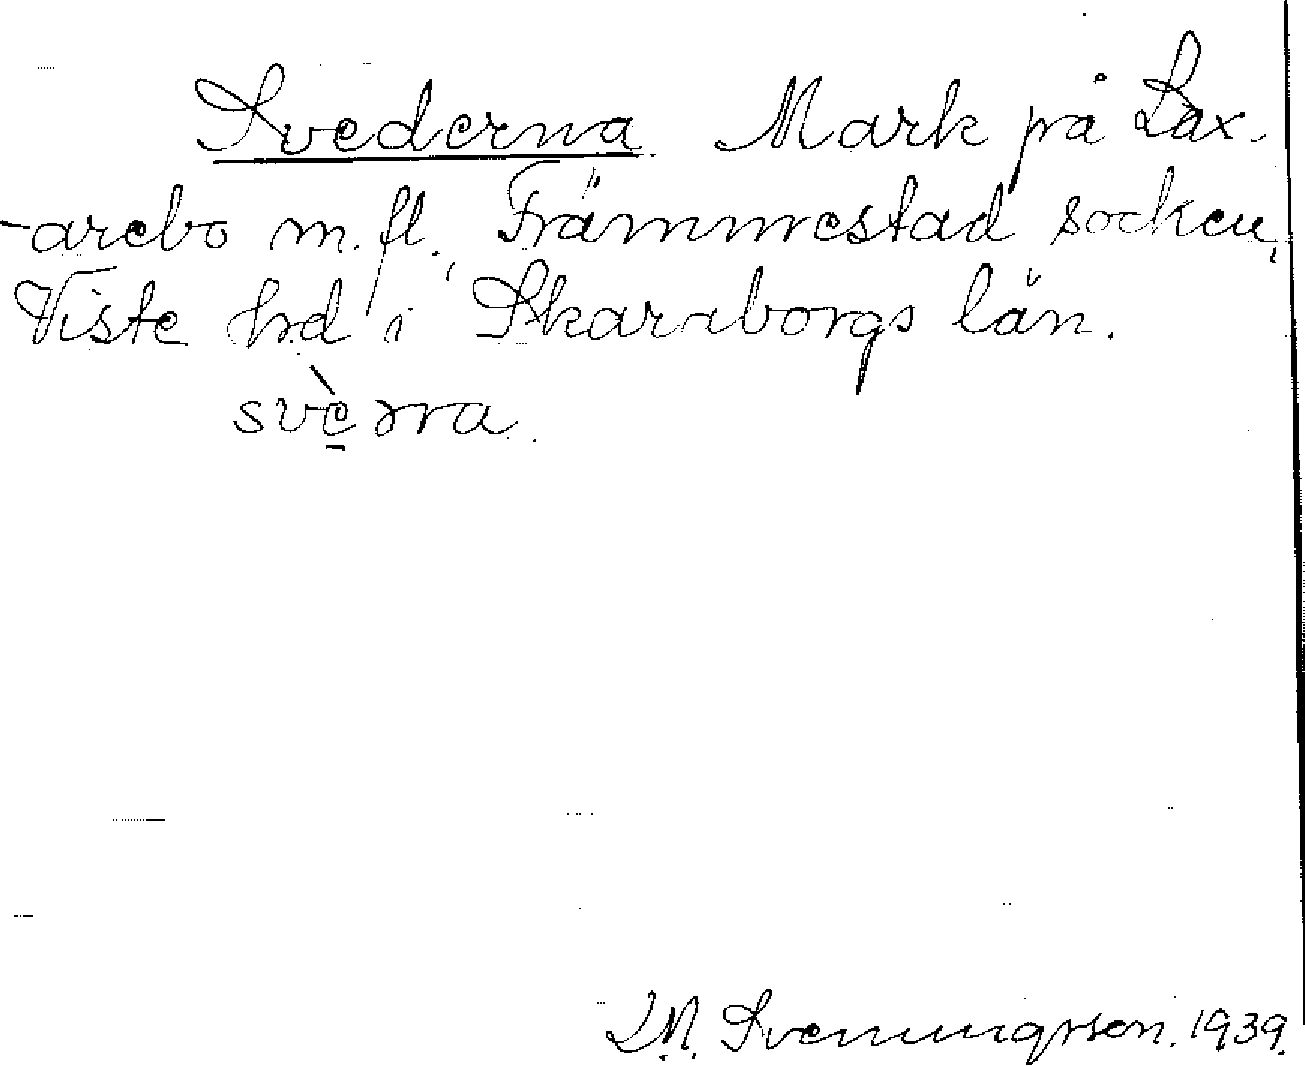 Svederna Mark på Lax-
-arebo m. fl., Främmestad socken,
Viste hd i Skaraborgs län.
svèrna.
Sveningsson. 1939.